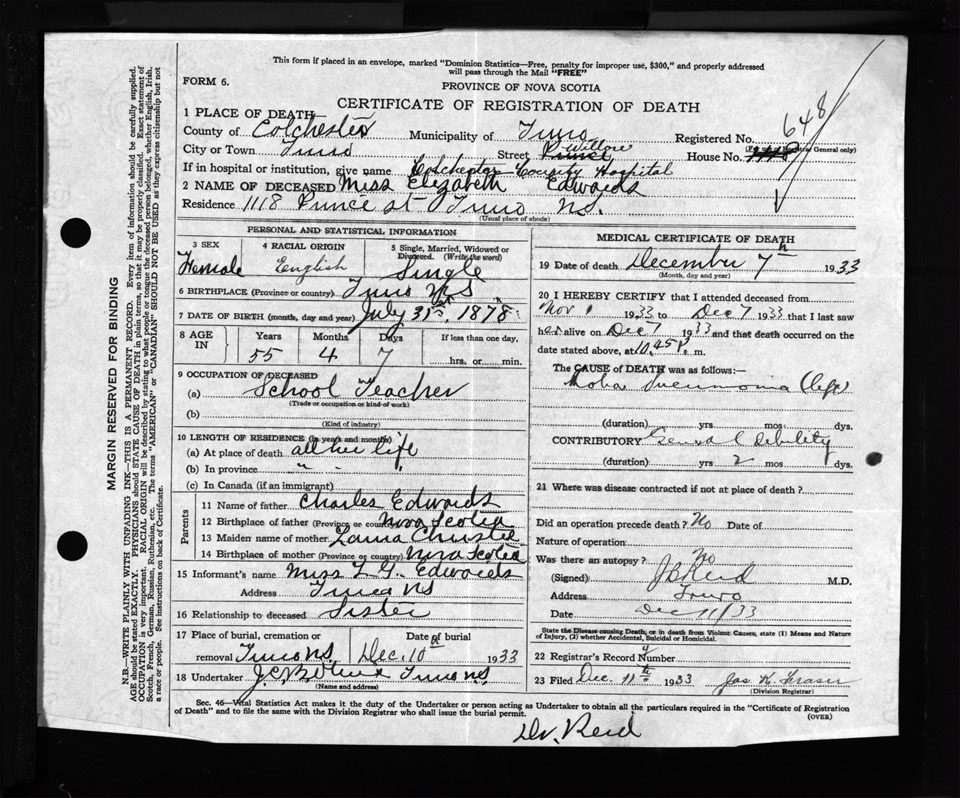 This form if placed in an envelope, marked "Dominion Statistics—Free, penalty for improper use, $300," and properly addressed
will pass through the Mail "FREE"
FORM 6.
PROVINCE OF NOVA SCOTIA
CERTIFICATE OF REGISTRATION OF DEATH
648
1 PLACE OF DEATH
County of Colchester Municipality of Truro Registered No.
City or Town Truro Street Prince Willow House No. 1118
If in hospital or institution, give name Colchester County Hospital
2 NAME OF DECEASED Miss Elizabeth Edwards
Residence 1118 Prince st Truro NS.
(Usual place of abode)
PERSONAL AND STATISTICAL INFORMATION
3 SEX 4 RACIAL ORIGIN 5 Single, Married, Widowed or
Divorced. (Write the word)
Female English Single
6 BIRTHPLACE (Province or country) Truro NS
7 DATE OF BIRTH (month, day and year) July 31st, 1878
8 AGE IN Years Months Days If less than one day,
55 4 7 hrs. or min.
9 OCCUPATION OF DECEASED
(a) School Teacher
(Trade or occupation or kind of work)
(b)
(Kind of industry)
10 LENGTH OF RESIDENCE (in years and months)
(a) At place of death all her life
(b) In province " " "
(c) In Canada (if an immigrant)
Parents
11 Name of father Charles Edwards
12 Birthplace of father (Province or country) Nova Scotia
13 Maiden name of mother Laura Christie
14 Birthplace of mother (Province or country) Nova Scotia
15 Informant's name Miss L G. Edwards
Address Truro NS
16 Relationship to deceased Sister
17 Place of burial, cremation or Date of burial
removal Truro NS. Dec. 10th 1933
18 Undertaker Truro NS.
(Name and address)
MEDICAL CERTIFICATE OF DEATH
19 Date of death December 7th 1933
(Month, day and year)
20 I HEREBY CERTIFY that I attended deceased from
Nov 1 1933 to Dec 7 1933 that I last saw
her alive on Dec 7 1933 and that death occurred on the
date stated above, at 10.45 P. m.
The CAUSE of DEATH was as follows:—
Lobar Pneumonia (left)
(duration) yrs mos. dys.
CONTRIBUTORY General Debility
(duration) yrs 2 mos dys.
21 Where was disease contracted if not at place of death?
Did an operation precede death? No Date of
Nature of operation
Was there an autopsy? No
(Signed) J B Reid M.D.
Address Truro
Date Dec 11/33
State the Disease causing Death, or in death from Violent Causes, state (1) Means and Nature
of Injury, (2) whether Accidental, Suicidal or Homicidal.
22 Registrar's Record Number
23 Filed Dec. 11th 1933 Jas. K. Fraser
(Division Registrar)
Sec. 46—Vital Statistics Act makes it the duty of the Undertaker or person acting as Undertaker to obtain all the particulars required in the "Certificate of Registration
of Death" and to file the same with the Division Registrar who shall issue the burial permit.
(OVER)
Dr. Reid
MARGIN RESERVED FOR BINDING
N.B.—WRITE PLAINLY WITH UNFADING INK—THIS IS A PERMANENT RECORD. Every item of information should be carefully supplied.
AGE should be stated EXACTLY. PHYSICIANS should STATE CAUSE OF DEATH in plain terms, so that it may be properly classified. Exact statement of
OCCUPATION is very important. RACIAL ORIGIN will be described by stating to what people or tongue the deceased person belonged, whether English, Irish,
Scotch, French, German, Russian, Ruthenian, etc. The terms "AMERICAN" or "CANADIAN" SHOULD NOT BE USED as they express citizenship but not
a race or people. See instructions on back of Certificate.